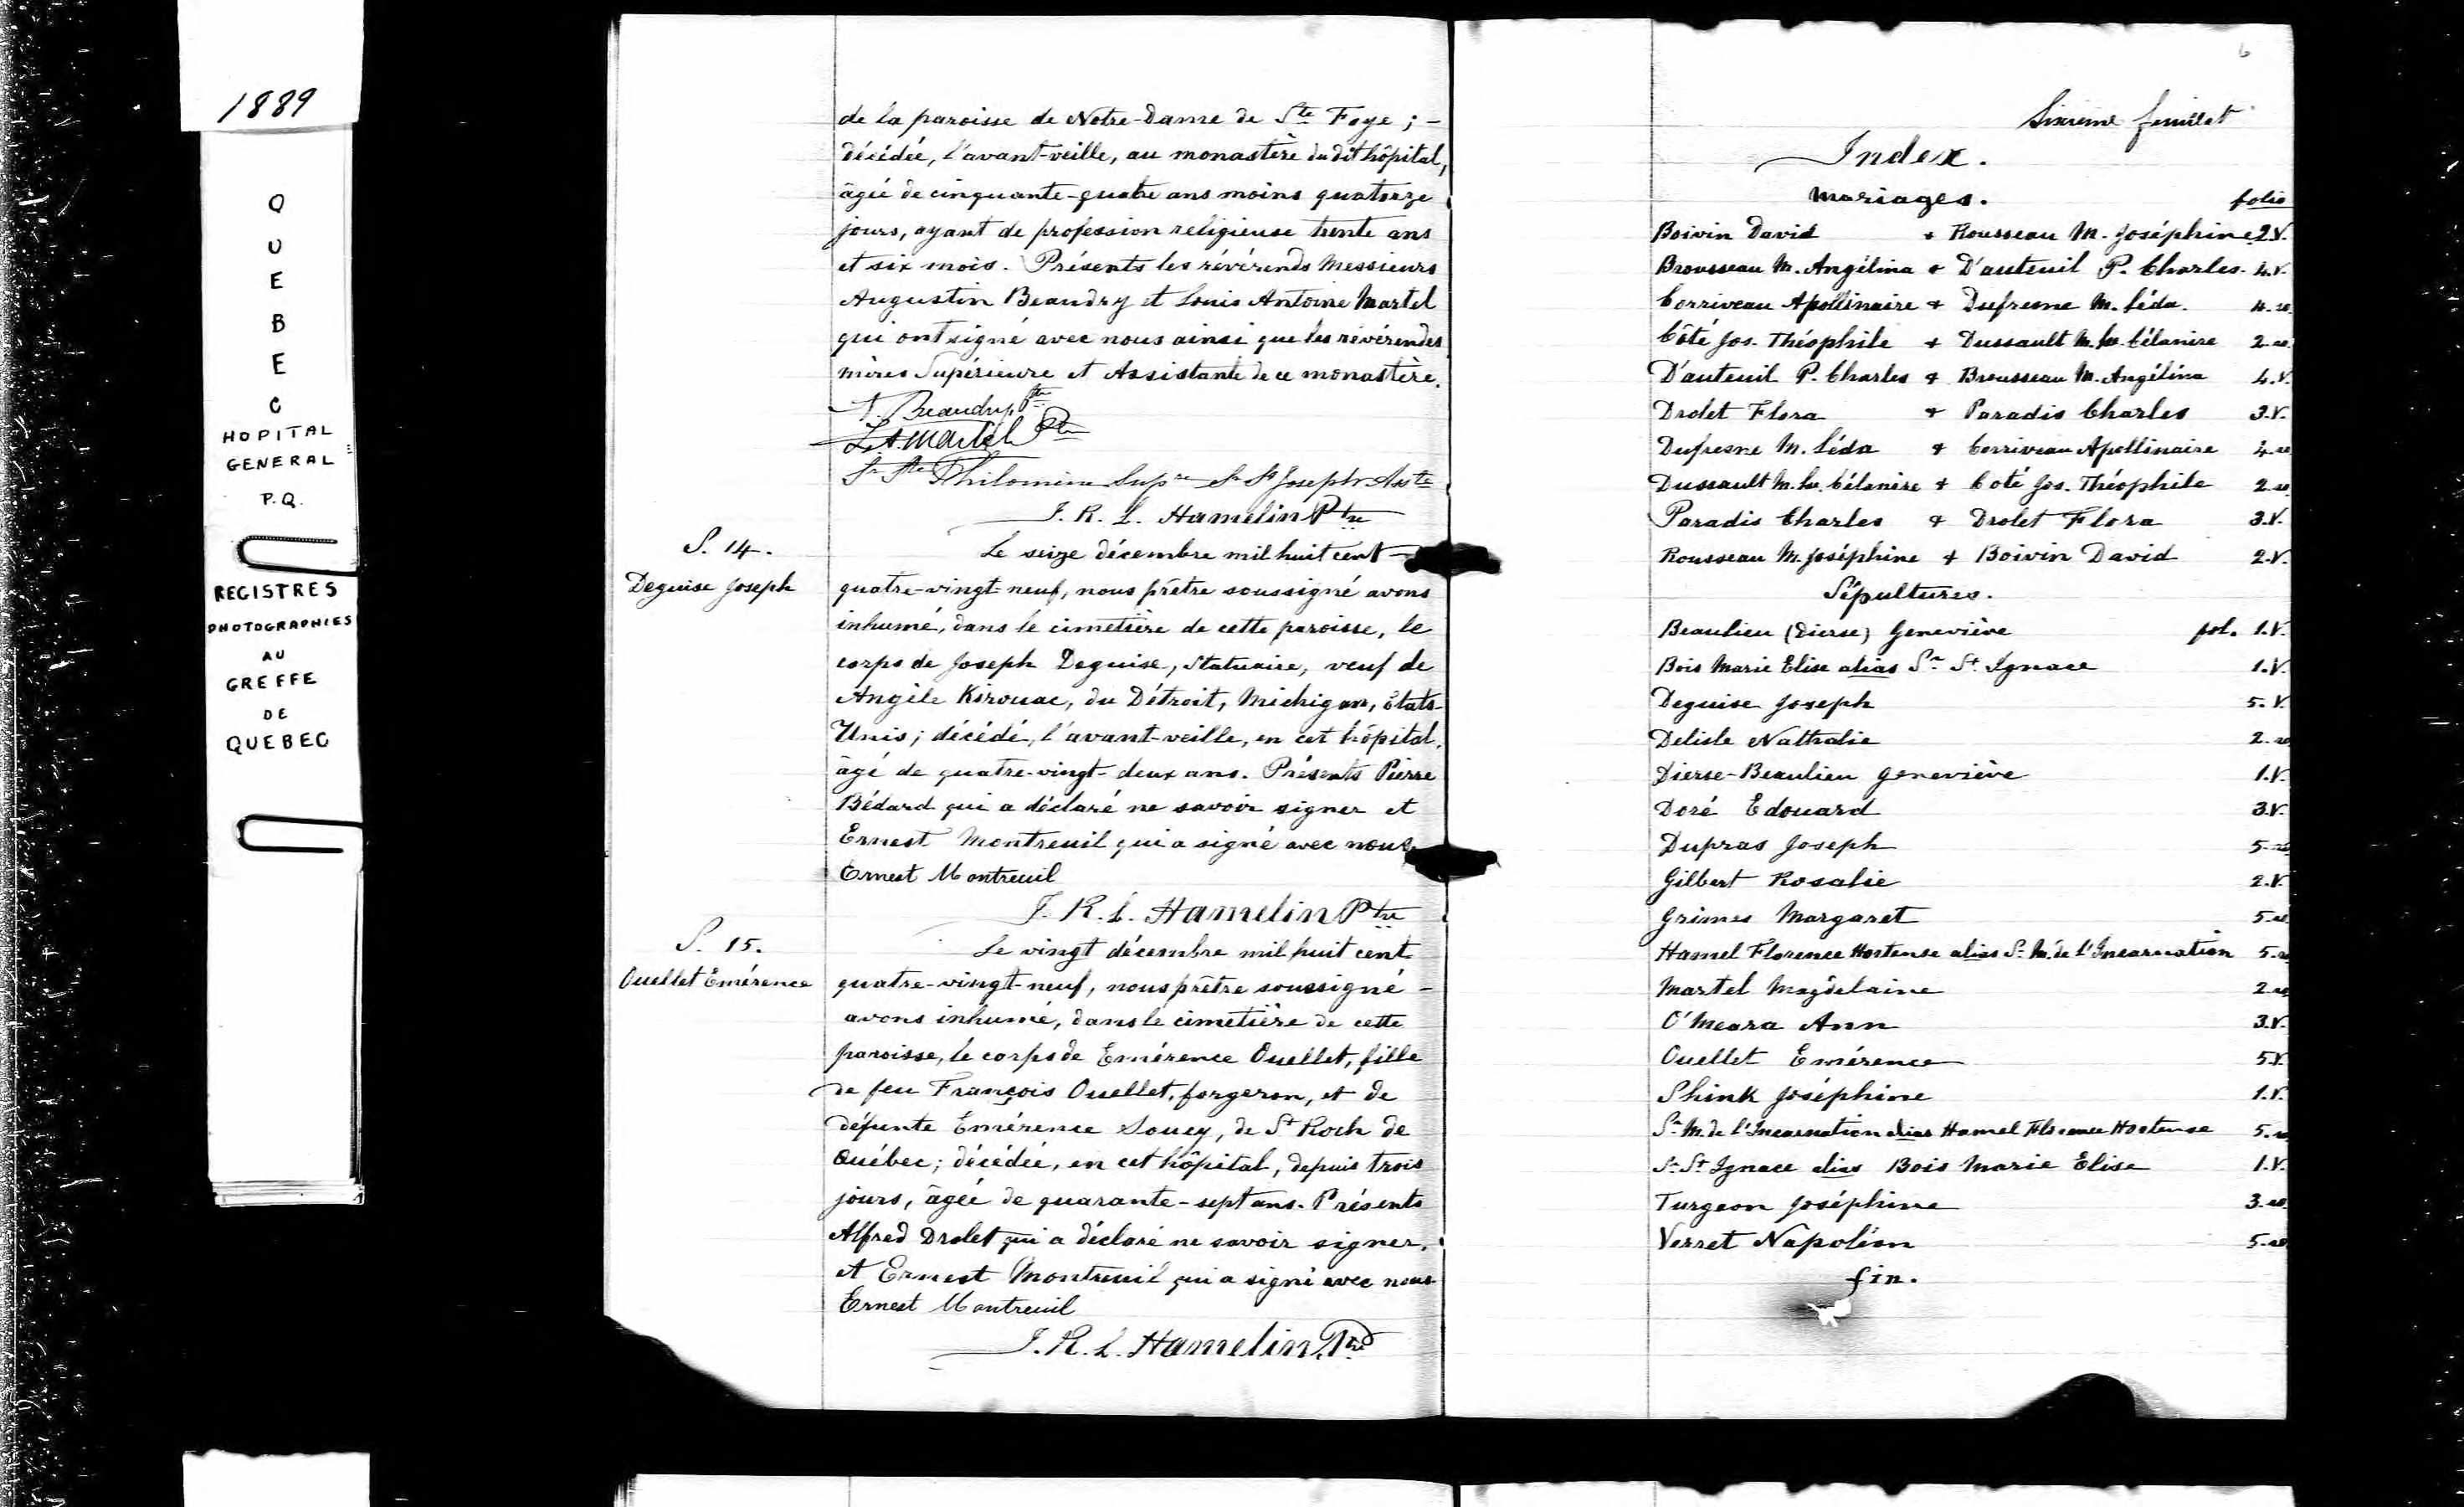 1889
QUEBEC
HOPITAL
GENERAL
P.Q.
REGISTRES
PHOTOGRAPHIES
AU
GREFFE
DE
QUEBEC
de la paroisse de Notre-Dame de Ste Foye ; -
décédée, l'avant-veille, au monastère du dit hôpital,
âgée de cinquante-quatre ans moins quatorze
jours, ayant de profession religieuse trente ans
et six mois. Présents les révérends Messieurs
Augustin Beaudry et Louis Antoine Martel
qui ont signé avec nous ainsi que les révérendes
mères Supérieure et Assistante de ce monastère.
A. Beaudry, Ptre
L. A. Martel Ptre
Sr Ste Philomène Supre Sr St Joseph Aste
J. R. L. Hamelin Ptre
S. 14.
Deguise Joseph
Le seize décembre mil huit cent -
quatre-vingt-neuf, nous prêtre soussigné avons
inhumé, dans le cimetière de cette paroisse, le
corps de Joseph Deguise, Statuaire, veuf de
Angèle Kirouac, du Détroit, Michigan, Etats-
Unis ; décédé, l'avant-veille, en cet hôpital,
âgé de quatre-vingt-deux ans. Présents Pierre
Bédard qui a déclaré ne savoir signer et
Ernest Montreuil qui a signé avec nous
Ernest Montreuil
J. R. L. Hamelin Ptre
S. 15.
Ouellet Emérence
Le vingt décembre mil huit cent
quatre-vingt-neuf, nous prêtre soussigné -
avons inhumé, dans le cimetière de cette
paroisse, le corps de Emérence Ouellet, fille
de feu François Ouellet, forgeron, et de
défunte Emérence Soucy, de St Roch de
Québec ; décédée, en cet hôpital, depuis trois
jours, âgée de quarante-sept ans. Présents
Alfred Drolet qui a déclaré ne savoir signer,
et Ernest Montreuil qui a signé avec nous
Ernest Montreuil
J. R. L. Hamelin, Ptre
6
Sixième feuillet
Index.
Mariages. folio
Boivin David & Rousseau M. Joséphine 2.V.
Brousseau M. Angélina & D'auteuil P. Charles. 4.V.
Corriveau Apollinaire & Dufresne M. Léda. 4.ro
Côté Jos. Théophile & Dussault M. Lse. Célanire 2.ro
D'auteuil P. Charles & Brousseau M. Angélina 4.V.
Drolet Flora & Paradis Charles 3.V.
Dufresne M. Léda & Corriveau Apollinaire 4.ro
Dussault M. Lse. Célanire & Coté Jos. Théophile 2.ro
Paradis Charles & Drolet Flora 3.V.
Rousseau M. Joséphine & Boivin David 2.V.
Sépultures.
Beaulieu (Dierse) Geneviève fol. 1.V.
Bois Marie Elise alias Sr St. Ignace 1.V.
Deguise Joseph 5.V.
Delisle Nathalie 2.ro
Dierse-Beaulieu Geneviève 1.V.
Doré Edouard 3.V.
Dupras Joseph 5.ro
Gilbert Rosalie 2.V.
Grimes Margaret 5.ro
Hamel Florence Hortense alias Sr M. de l'Incarnation 5.ro
Martel Magdelaine 2.ro
O'Meara Ann 3.V.
Ouellet Emérence 5.V.
Shink Joséphine 1.V.
Sr M. de l'Incarnation alias Hamel Florence Hortense 5.ro
Sr St Ignace alias Bois Marie Elise 1.V.
Turgeon Joséphine 3.ro
Verret Napoléon 5.ro
fin.